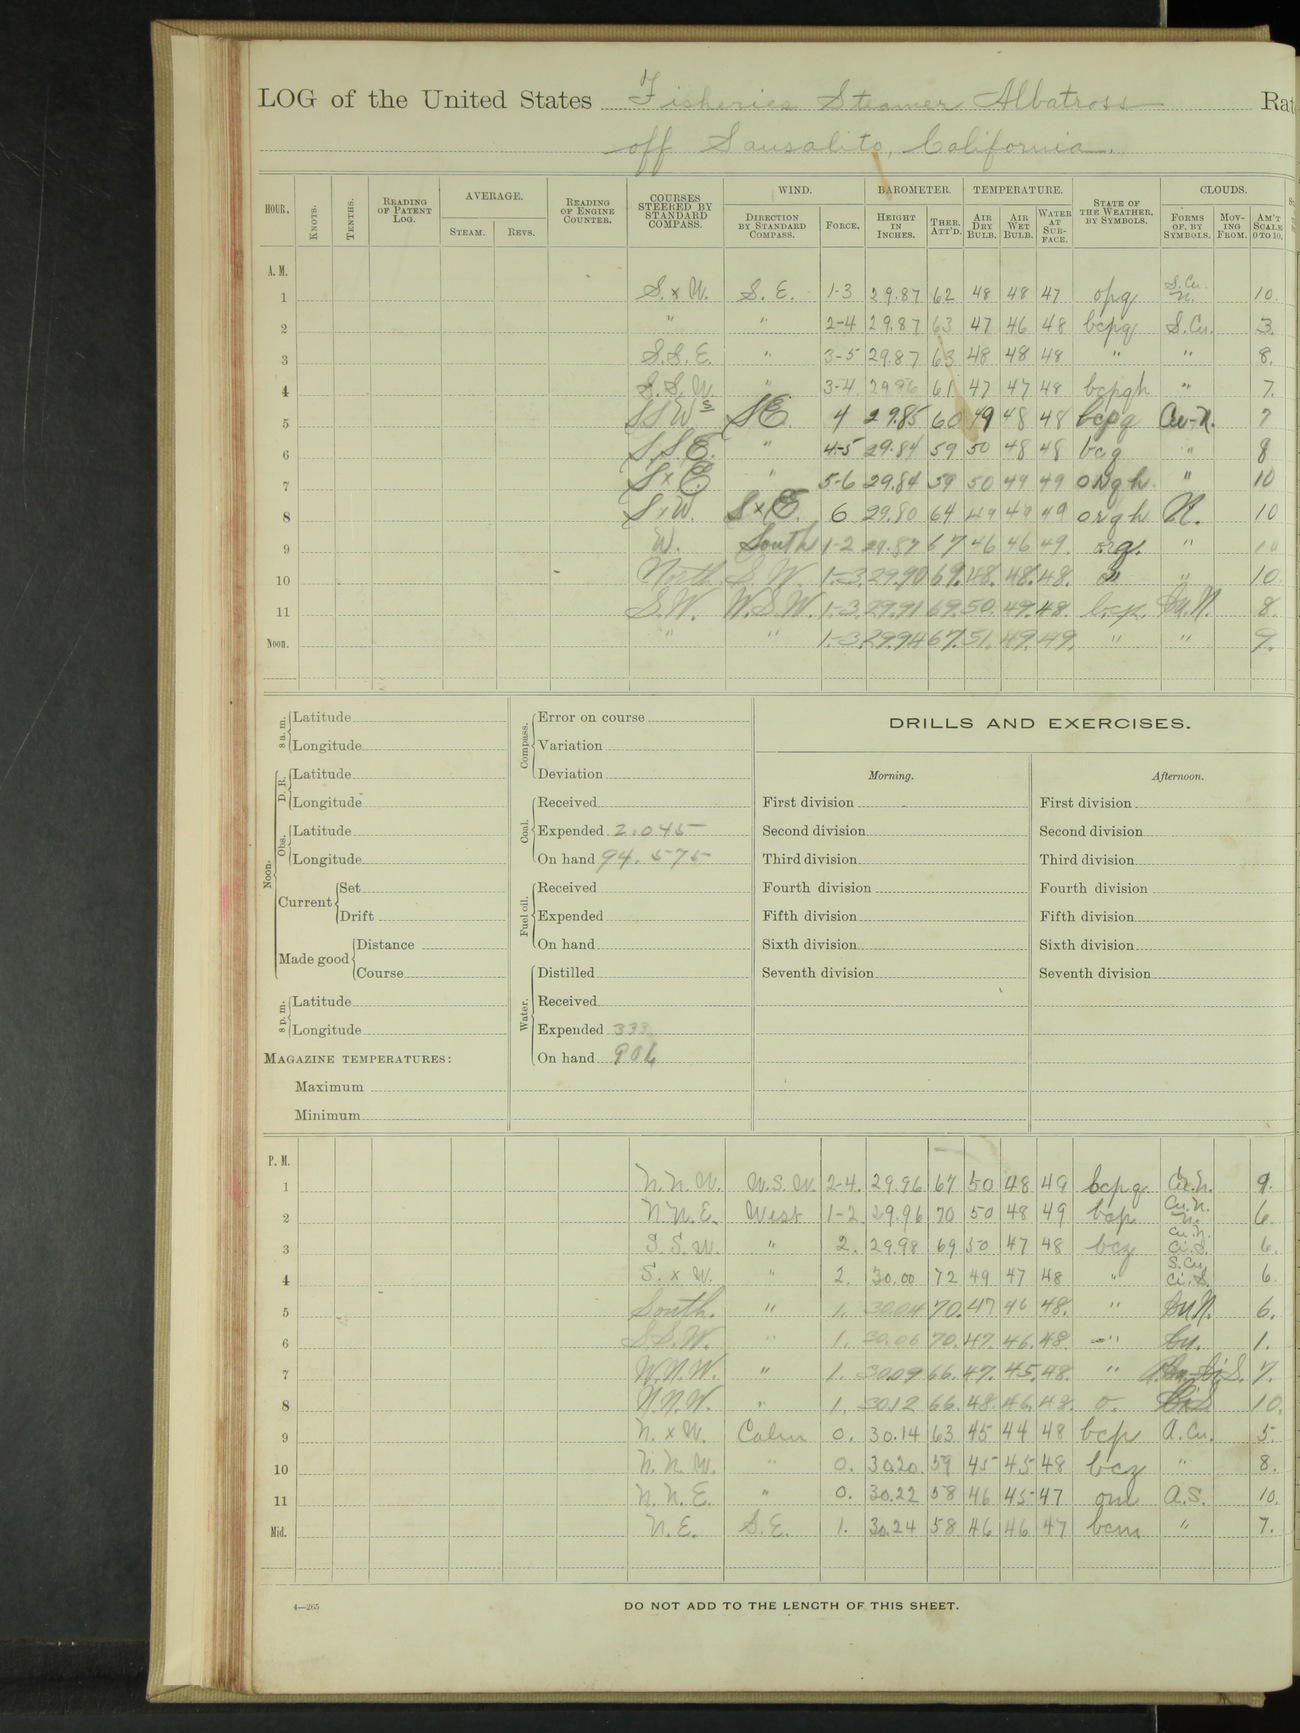 LOG of the United States Fisheries Steamer Albatross Rat
off Sausalito, California.
HOUR. KNOTS. TENTHS. READING OF PATENT LOG. AVERAGE. STEAM. REVS. READING OF ENGINE COUNTER. COURSES STEERED BY STANDARD COMPASS. WIND. DIRECTION BY STANDARD COMPASS. FORCE. BAROMETER. HEIGHT IN INCHES. THER. ATT'D. TEMPERATURE. AIR DRY BULB. AIR WET BULB. WATER AT SURFACE. STATE OF THE WEATHER, BY SYMBOLS. CLOUDS. FORMS OF, BY SYMBOLS. MOVING FROM. AM'T SCALE 0 TO 10.
A. M.
1 S. x W. S. E. 1-3 29.87 62 48 48 47 opq S.Cu. N. 10.
2 " " 2-4 29.87 63 47 46 48 bcpq S.Cu. 3.
3 S.S.E. " 3-5 29.87 63 48 48 48 " " 8.
4 S.S.W. " 3-4 29.86 61 47 47 48 bcpqh " 7.
5 SSW S SE. 4 29.85 60 49 48 48 bcpq Cu-N. 7
6 S.S.E. " 4-5 29.84 59 50 48 48 bcq " 8
7 SxE. " 5-6 29.84 59 50 49 49 orqh. " 10
8 SxW. SxE. 6 29.80 64 49 49 49 orqh N. 10
9 W. South 1-2 29.87 67 46 46 49. orq. " 10
10 North S.W. 1-3. 29.90 69. 48. 48. 48. " " 10.
11 S.W. W.S.W. 1-3. 29.91 69. 50. 49. 48. bcp. Cu.N. 8.
Noon. " " 1-3. 29.94 67. 51. 49. 49. " " 9.
8 a. m. Latitude
Longitude
Noon. D. R. Latitude
Longitude
Obs. Latitude
Longitude
Current Set
Drift
Made good Distance
Course
8 p. m. Latitude
Longitude
MAGAZINE TEMPERATURES:
Maximum
Minimum
Compass. Error on course
Variation
Deviation
Coal. Received
Expended 2.045
On hand 94.575
Fuel oil. Received
Expended
On hand
Water. Distilled
Received
Expended 333
On hand 906
DRILLS AND EXERCISES.
Morning. Afternoon.
First division First division
Second division Second division
Third division Third division
Fourth division Fourth division
Fifth division Fifth division
Sixth division Sixth division
Seventh division Seventh division
P. M.
1 N.N.W. W.S.W. 2-4. 29.96 67 50 48 49 bcpq Cu.N. 9.
2 N.N.E. West 1-2 29.96 70 50 48 49 bcp Cu.N. N. 6.
3 S.S.W. " 2. 29.98 69 50 47 48 bcz Cu.N. Ci.S. 6.
4 S. x W. " 2. 30.00 72 49 47 48 " S.Cu. Ci.S. 6.
5 South. " 1. 30.04 70. 47 46 48. " Cu.N. 6.
6 S.S.W. " 1. 30.06 70. 47. 46. 48. " Cu. 1.
7 W.N.W. " 1. 30.09 66. 47. 45. 48. " 7.
8 N.N.W. " 1. 30.12 66. 48. 46. 48. o. 10.
9 N. x W. Calm 0. 30.14 63 45 44 48 bcp A.Cu. 5.
10 N.N.W. " 0. 30.20. 59 45 45 48 bcz " 8.
11 N.N.E. " 0. 30.22 58 46 45 47 om A.S. 10.
Mid. N.E. S.E. 1. 30.24 58 46 46 47 bcm " 7.
4—265 DO NOT ADD TO THE LENGTH OF THIS SHEET.